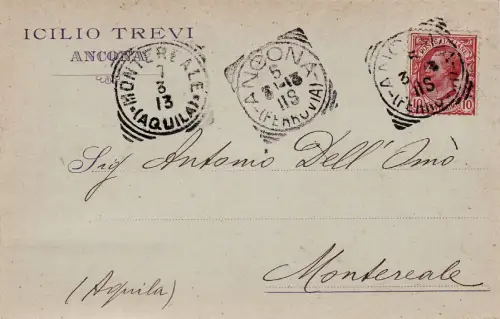 ICILIO TREVI
ANCONA
MONTEREALE
7
3
13
(AQUILA)
ANCONA
5
3-13
11S
(FERROVIA)
ANCO
3
11S
(FERRO
10
Sig Antonio Dell'Omò
Montereale
(Aquila)